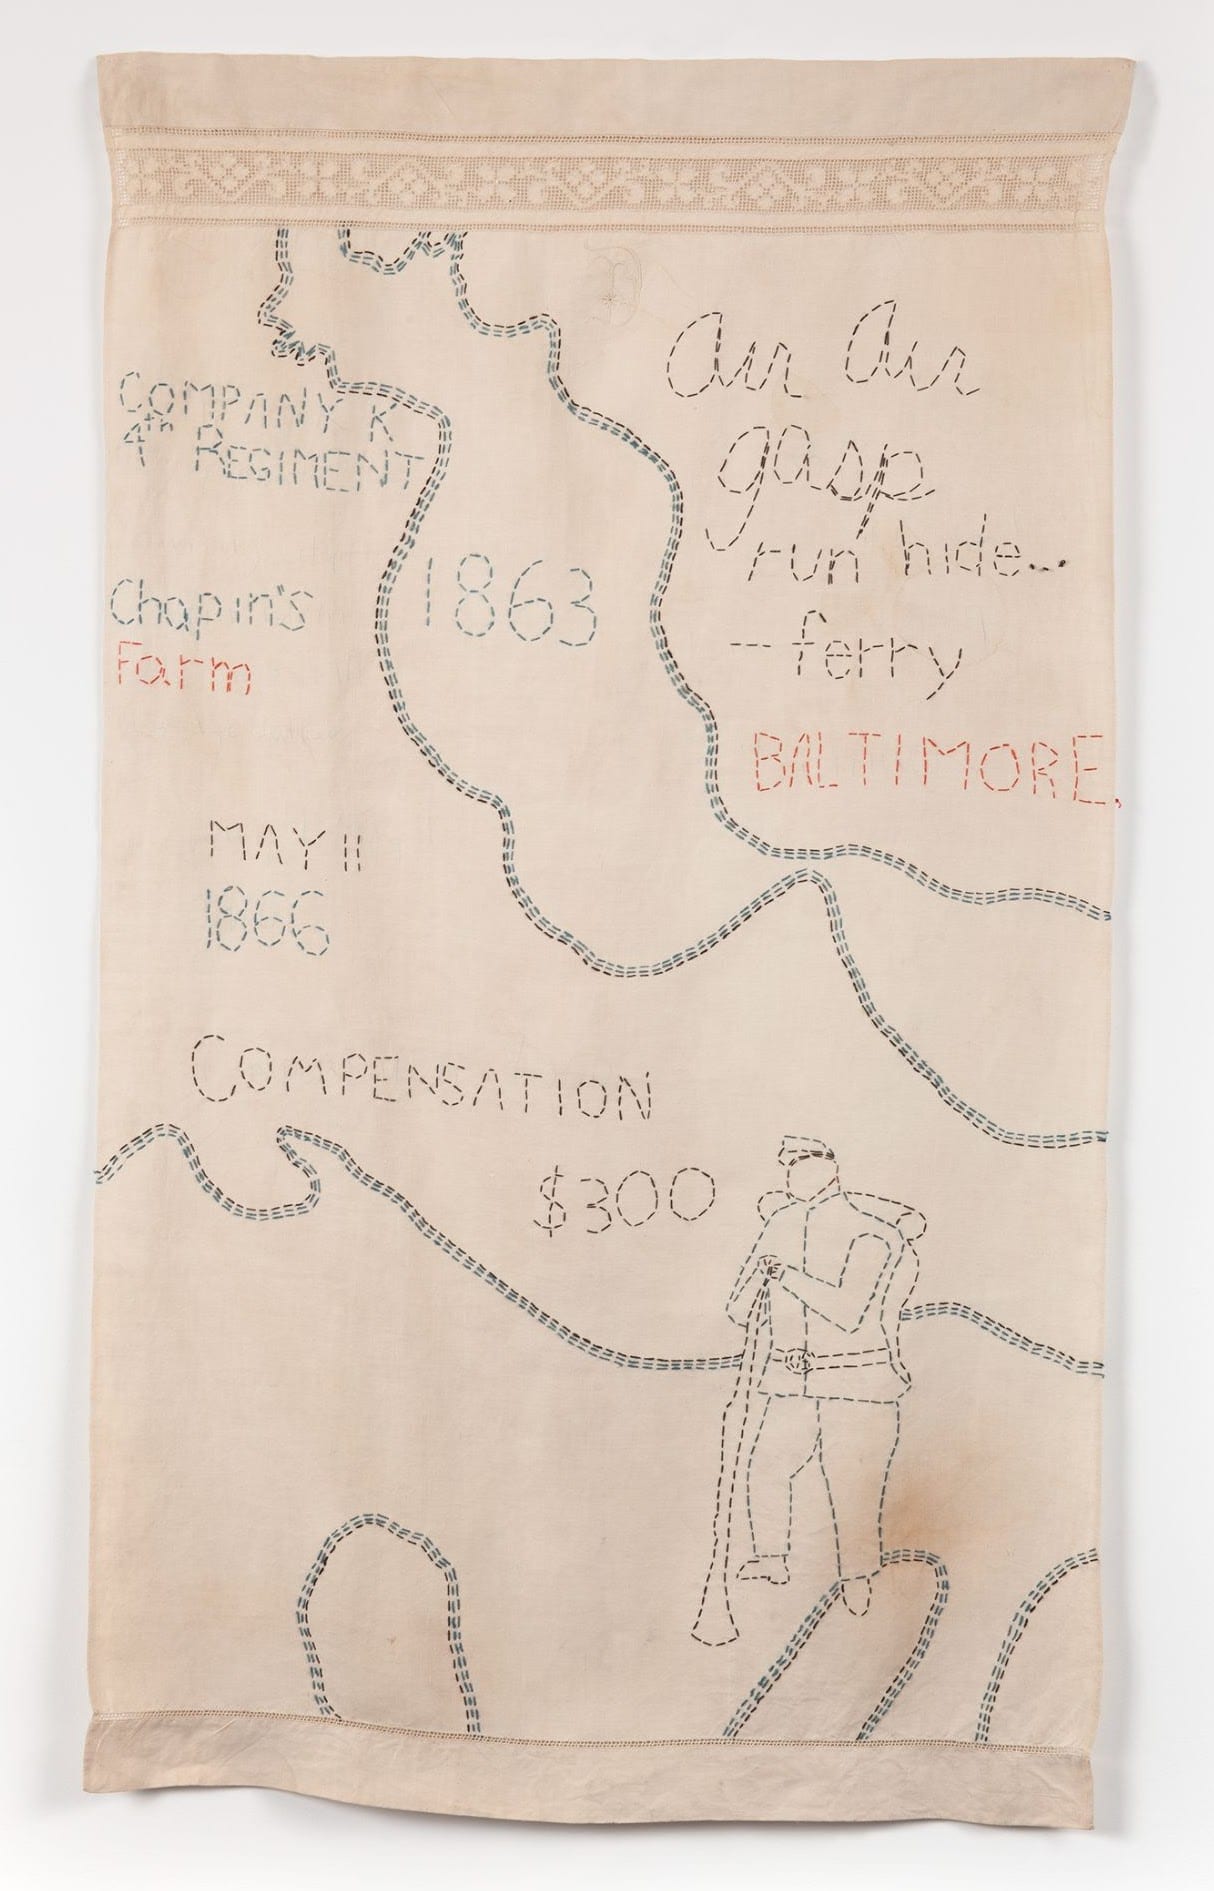 COMPANY K
4TH REGIMENT
Chapin's
Farm
1863
air air
gasp
run hide--
--ferry
BALTIMORE,
MAY 11
1866
COMPENSATION
$300